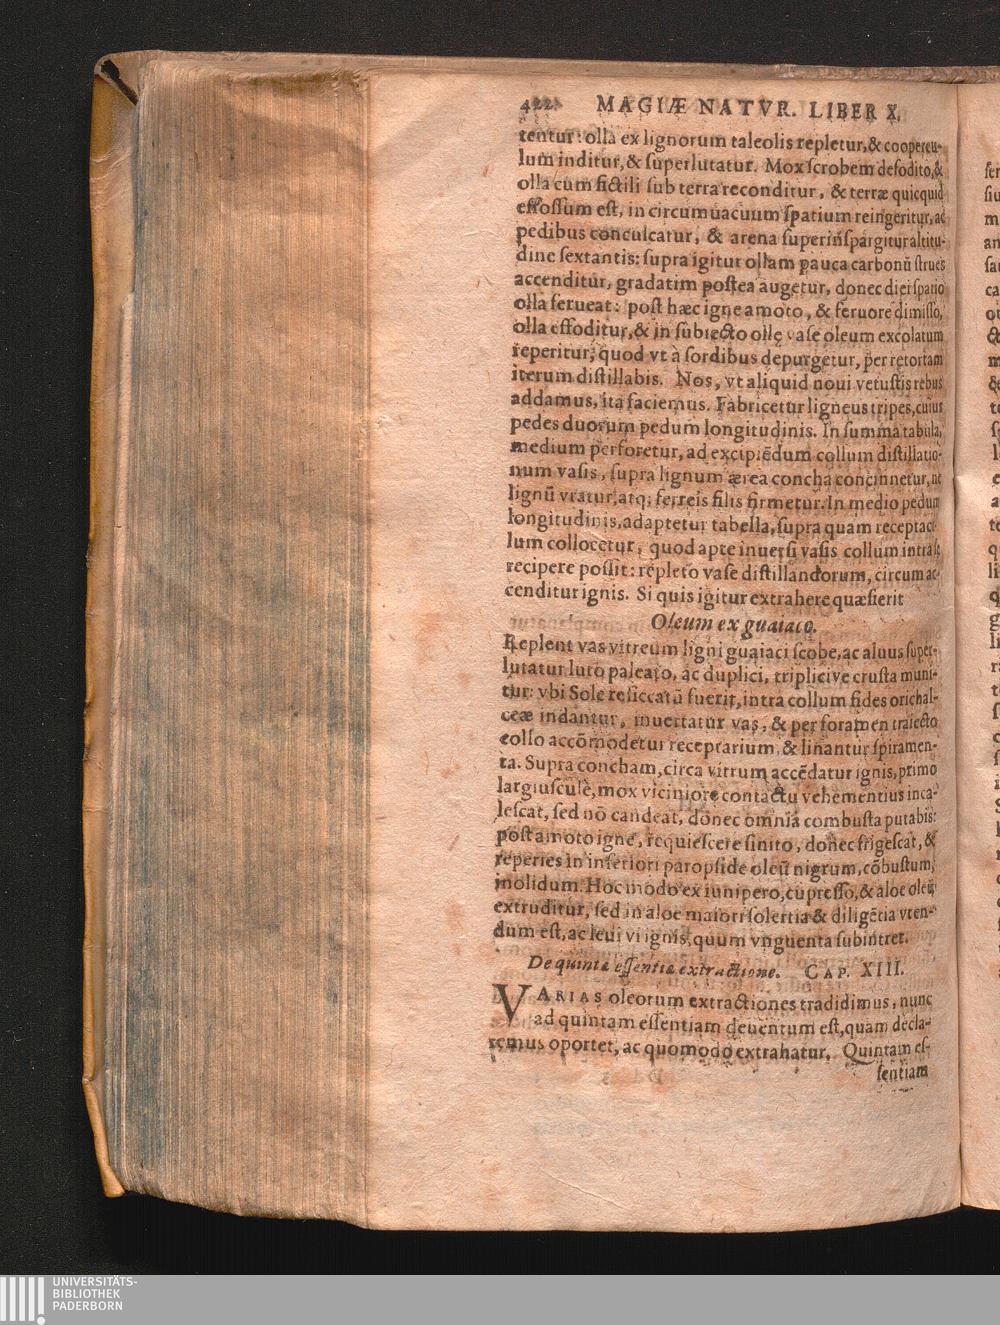 422 MAGIÆ NATVR. LIBER X.
tentur: olla ex lignorum taleolis repletur, & coopercu-
lum inditur, & superlutatur. Mox scrobem defodito, &
olla cum fictili sub terra reconditur, & terræ quicquid
effossum est, in circumuacuum spatium reingeritur, ac
pedibus conculcatur, & arena superinspargitur altitu-
dine sextantis: supra igitur ollam pauca carbonū strues
accenditur, gradatim postea augetur, donec diei spatio
olla ferueat: post hæc igne amoto, & feruore dimisso,
olla effoditur, & in subiecto ollę vase oleum excolatum
reperitur, quod vt à sordibus depurgetur, per retortam
iterum distillabis. Nos, vt aliquid noui vetustis rebus
addamus, ita faciemus. Fabricetur ligneus tripes, cuius
pedes duorum pedum longitudinis. In summa tabula,
medium perforetur, ad excipiēdum collum distillatio-
num vasis, supra lignum ærea concha concinnetur, ne
lignū vratur, atq; ferreis filis firmetur. In medio pedum
longitudinis, adaptetur tabella, supra quam receptacu-
lum collocetur, quod apte inuersi vasis collum intra se
recipere possit: repleto vase distillandorum, circum ac-
cenditur ignis. Si quis igitur extrahere quæsierit
Oleum ex guaiaco.
Replent vas vitreum ligni guaiaci scobe, ac aluus super-
lutatur luto paleato, ac duplici, triplicive crusta muni-
tur: vbi Sole resiccatū fuerit, intra collum fides orichal-
ceæ indantur, inuertatur vas, & per foramen traiecto
collo accōmodetur receptarium, & linantur spiramen-
ta. Supra concham, circa vitrum accēdatur ignis, primo
largiusculè, mox viciniore contactu vehementius inca-
lescat, sed nō candeat, donec omnia combusta putabis:
post amoto igne, requiescere sinito, donec frigescat, &
reperies in inferiori paropside oleū nigrum, cōbustum,
molidum. Hoc modo ex iunipero, cupresso, & aloe oleū
extruditur, sed in aloe maiori solertia & diligētia vten-
dum est, ac leui vi ignis, quum vnguenta subintret.
De quinta essentia extractione. CAP. XIII.
VARIAS oleorum extractiones tradidimus, nunc
ad quintam essentiam deuentum est, quam decla-
remus oportet, ac quomodo extrahatur. Quintam es-
sentiam
UNIVERSITÄTS-
BIBLIOTHEK
PADERBORN